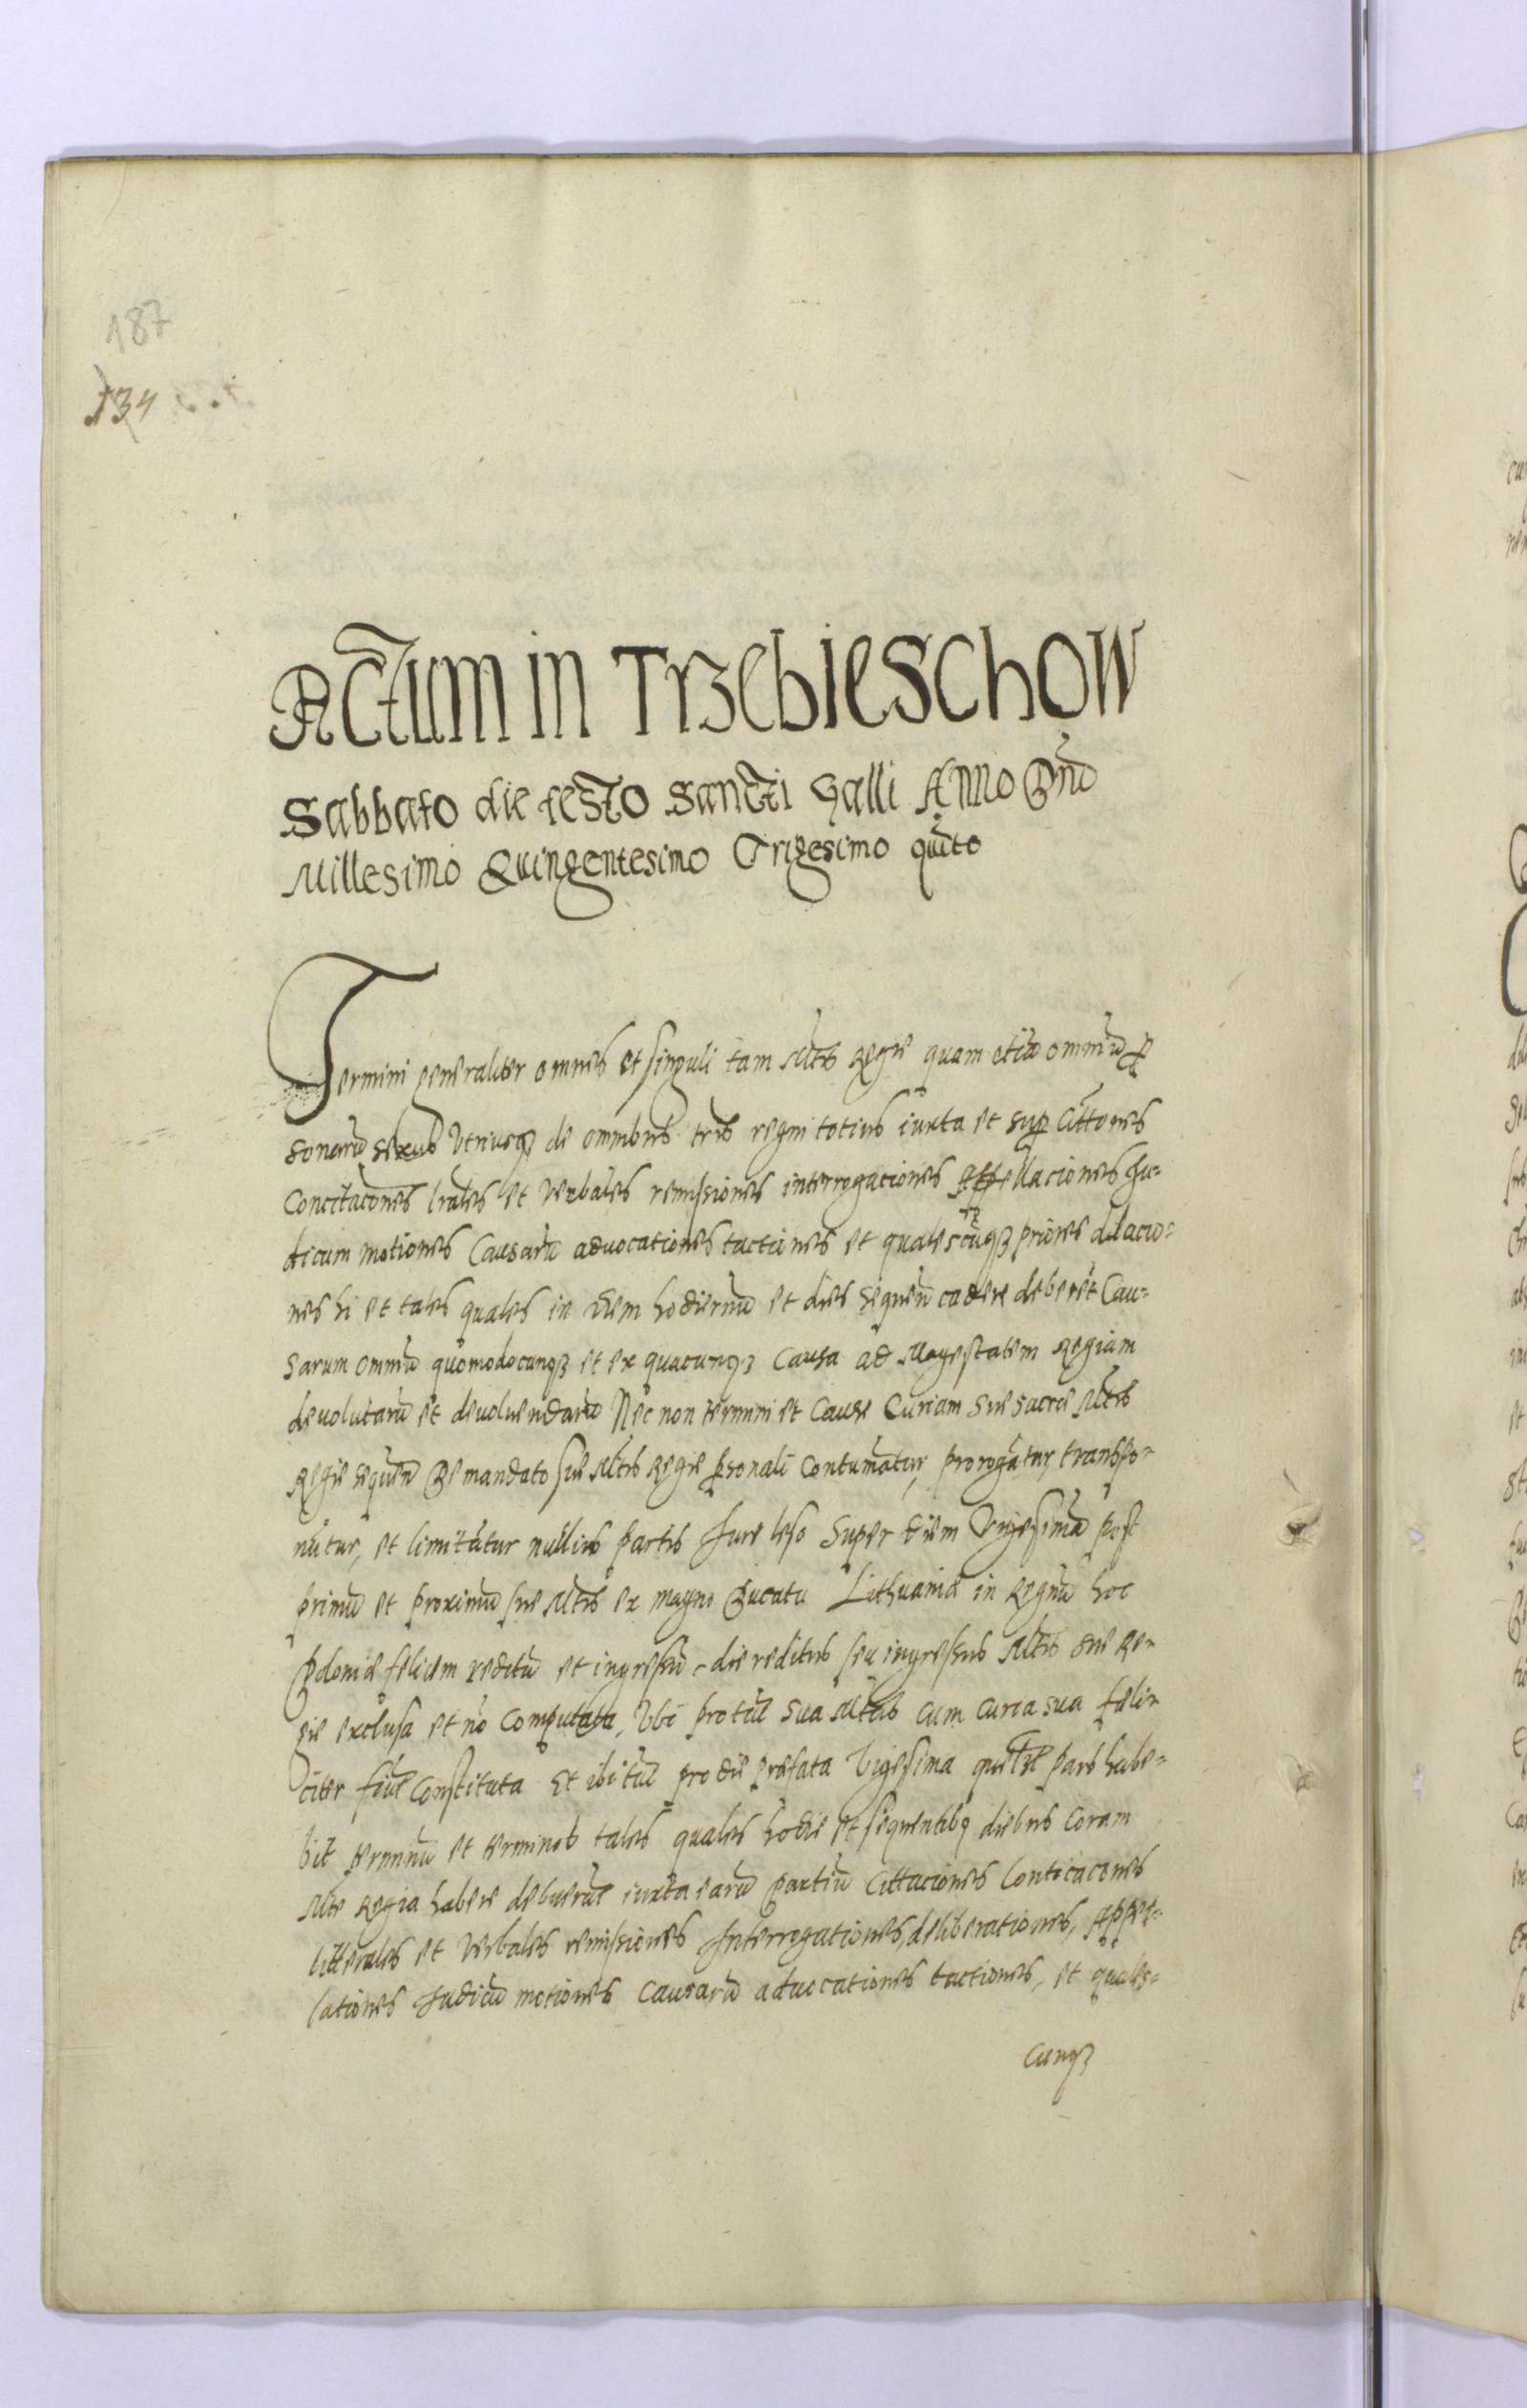 187
134
Actum in Trzebieschow
Sabbato die festo Sancti Galli Anno Dnī
Millesimo Quingentesimo Trigesimo quīto
Termini generaliter omnes et singuli tam Mtis Regie quam etiā omniū p
sonarū sexus utriusq de omnibus tris regni totius iuxta et sup Cittones
Concitacōnes lrales et verbales remissiones interrogationes Appellaciones Ju-
dicum motiones Causarū advocationes tactiones et qualescūq priores dilacio-
nes hi et tales quales in diem hodiernū et dies sequeñ cadere deberēt Cau-
sarum omniū quomodocunq et ex quacunq Causa ad Magestatem Regiam
devolutarū et devoluendarū Nec non termini et Cause Curiam Sue Sacre Mtis
Regie sequeñ De mandato sue Mtis Regie psonali Contumātur, prorogātur, transpo-
nūtur, et limitātur nullius partis Jure leso Super diem Vigesimā post
primū et proximū sue Mtis ex magno Ducatu Lithuaniæ in Regnū hoc
Poloniæ felicem reditū et ingressū die reditus seu ingressus Mtis sue Re-
gie exclusa et nō Computata, Ubi protūc Sua Mtas cum Curia sua fœli-
citer fūit Constituta Et ibi tūc pro die præfata Vigesima quelꝫ pars habe-
bit terminū et terminos tales quales hodie et sequentibꝫ diebus Coram
Mte Regia habere debuerūt iuxta earū partiū Cittaciones Concitacones
litterales et verbales remissiones Interrogationes, deliberationes, Appel-
lationes Judicū motiones Causarū advocationes tactiones, et quales-
Cunqꝫ